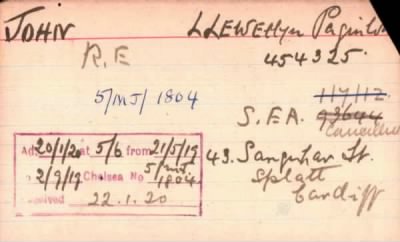 JOHN LLEWEllyn
R.E 454325.
5/MJ/1804 1/7/12.
S.E.A. 93644
Cancelled
Ad. 20/1/20 at 5/6 from 21/5/19 43. Sanquhar St.
2/9/19 Chelsea No 5/MJ/1804 Splott
ceived 22.1.20 Cardiff